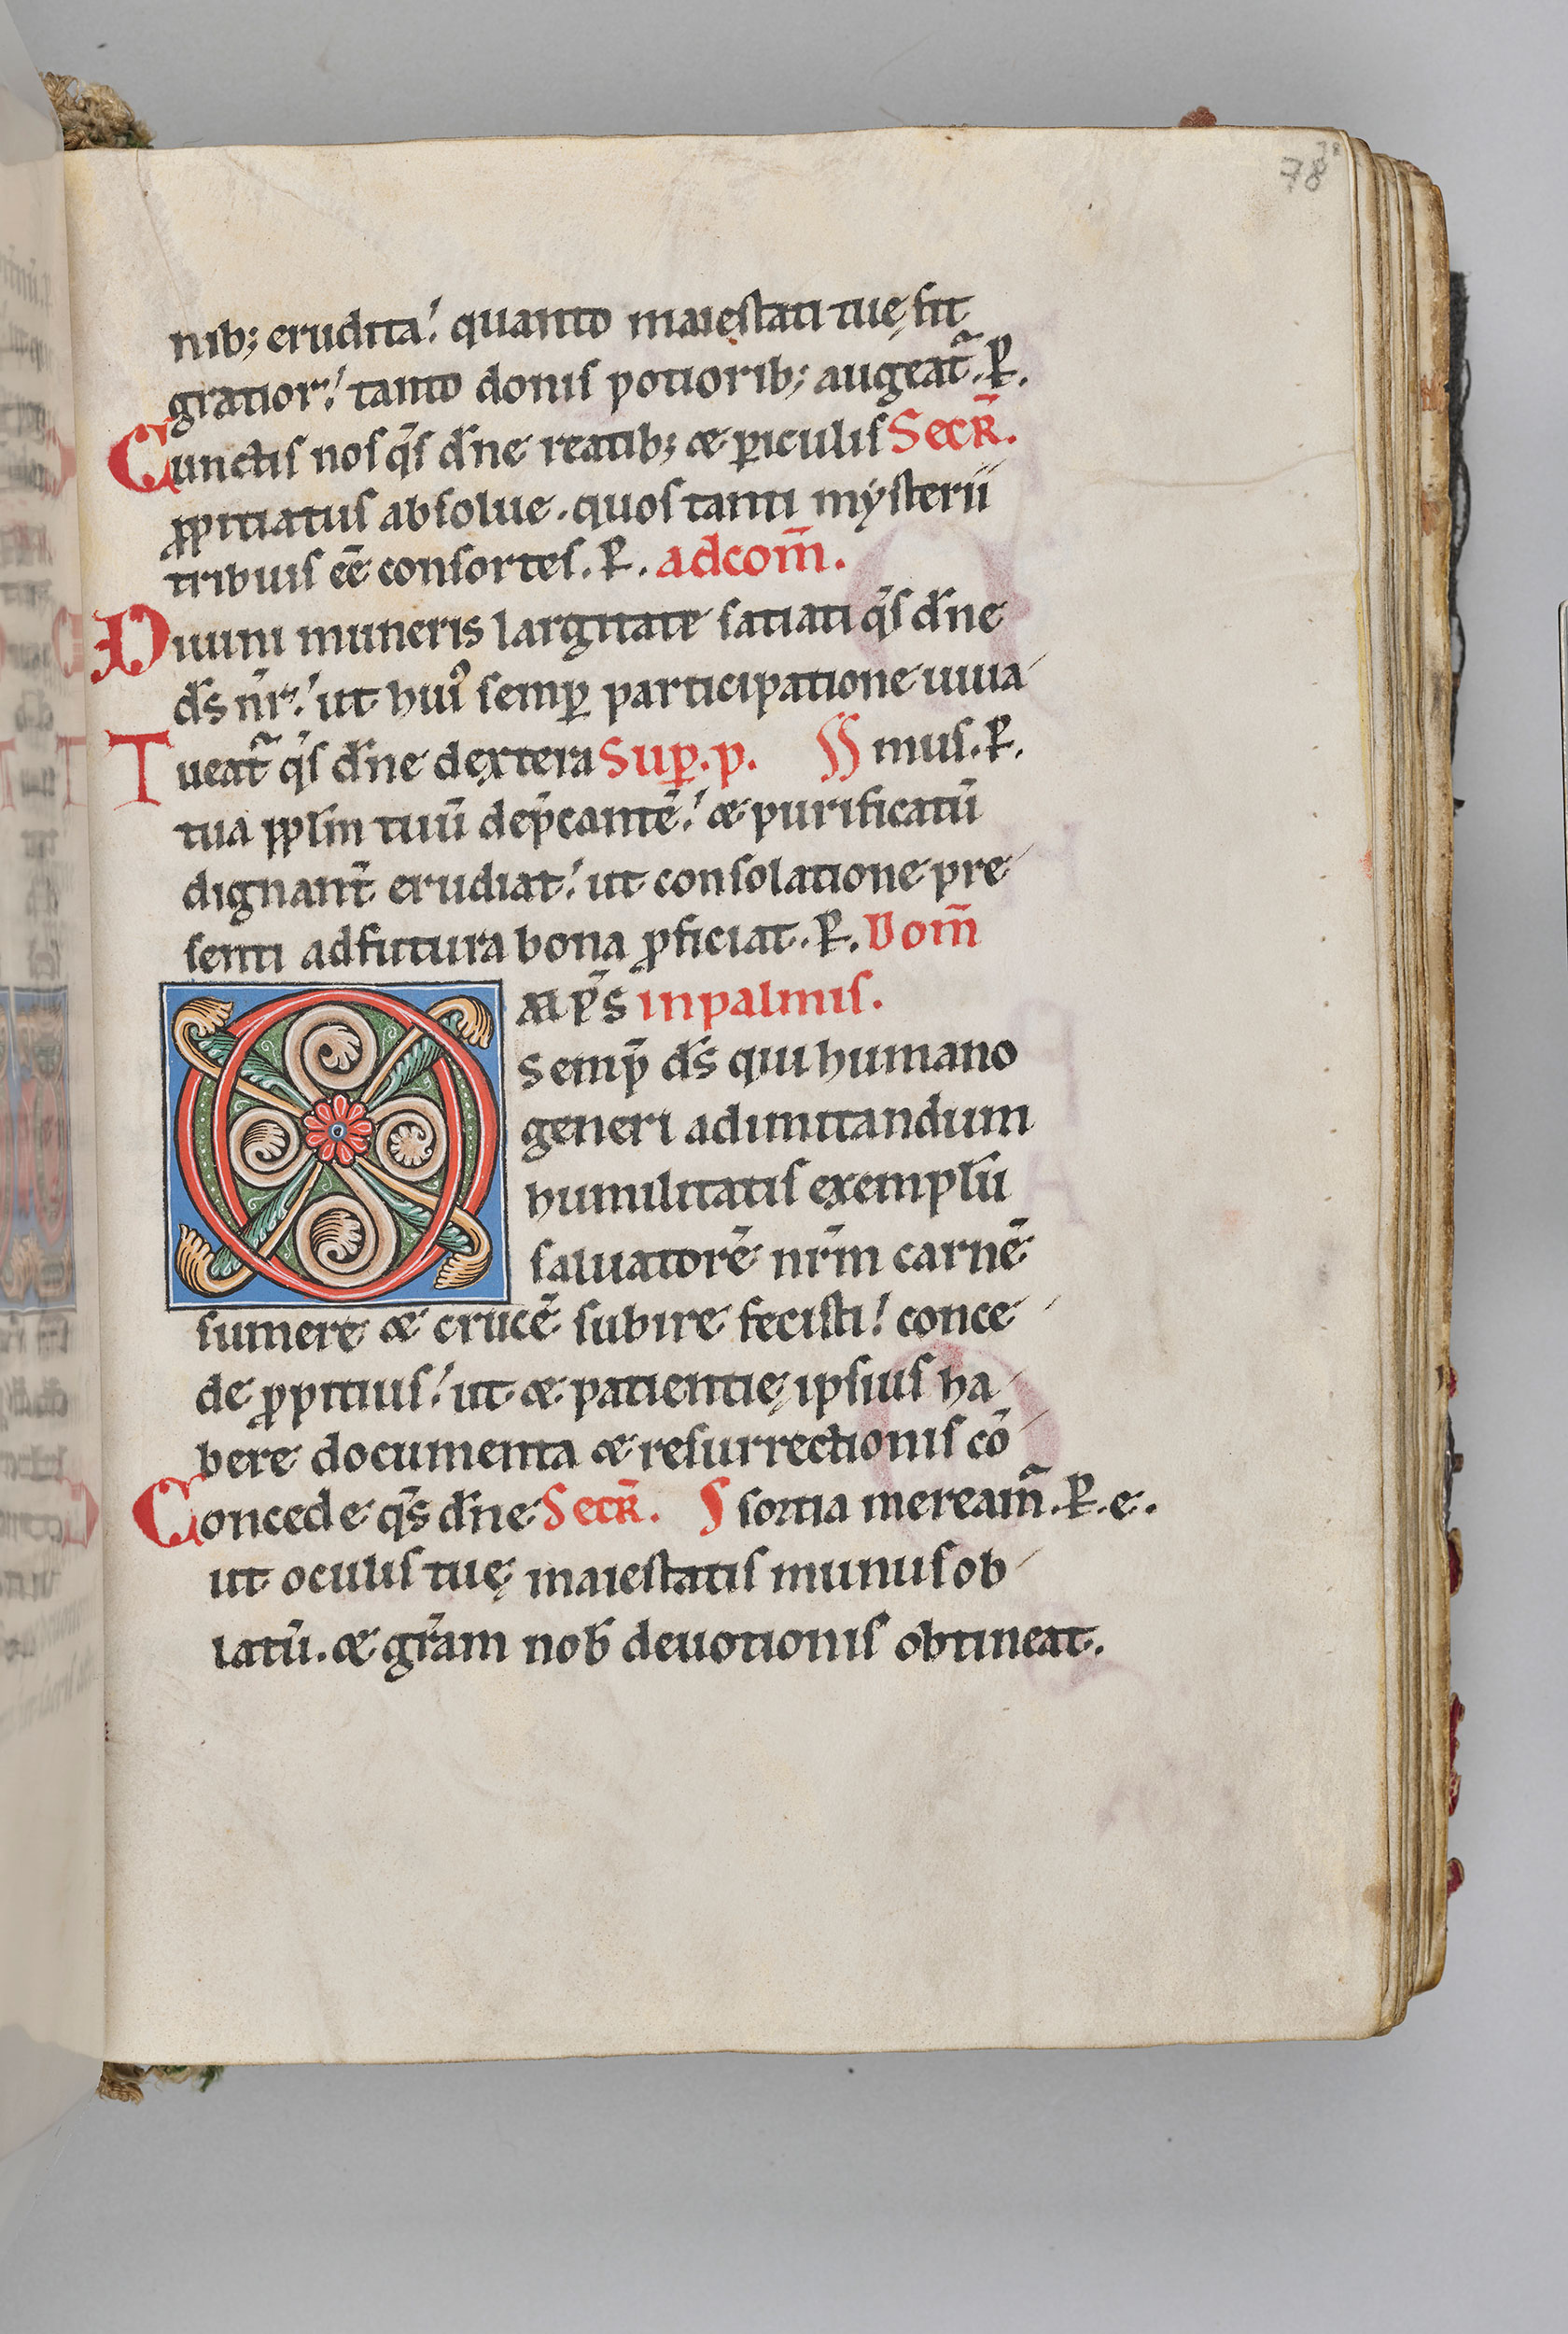 78
nib; erudita! quanto maiestati tuę sit
gratior! tanto donis potiorib; augeat̃. P̱.
Cunctis nos qs̃ dñe reatib; & ꝑiculis Secr̃.
ꝓpitiatus absolue. quos tanti mẏsterii
tribuis eē consortes. P̱. ad com̄.
Diuini muneris largitate satiati qs̃ dñe
ds̄ nr̃! ut hui᷒ semꝑ participatione uiua
Tueat̃ qs̃ dñe dextera Suꝑ. p. mus. P̱.
tua pp̱lm̄ tuū dep̄cantē! & purificatū
dignant̃ erudiat! ut consolatione pre
senti ad futura bona ꝓficiat. P̱. Dom̄
O ꝑs̄ in palmis.
semꝑ ds̄ qui humano
generi ad imitandum
humilitatis exemplū
saluatorē nrm̄ carnē
sumere & crucē subire fecisti! conce
de ꝓpitius! ut & patientię ipsius ha
bere documenta & resurrectionis cō
Concede qs̄ dñe Secr̃. sortia meream̃. P̱. e.
ut oculis tuę maiestatis munus ob
latū. & gr̄am nob̄ deuotionis obtineat.